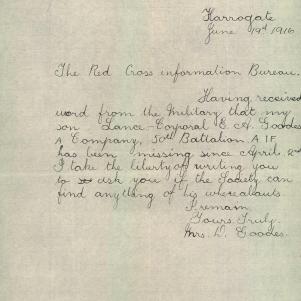 Harrogate
June 19th 1916
The Red Cross information Bureau.
Having received
word from the Military that my
son Lance-Corporal E. A. Goodes
A Company, 50th Battalion. A.I.F
has been missing since April 2nd
I take the liberty of writing you
to ask you if the Society can
find anything of his whereabouts
I remain
Yours Truly
Mrs. D. Goodes.